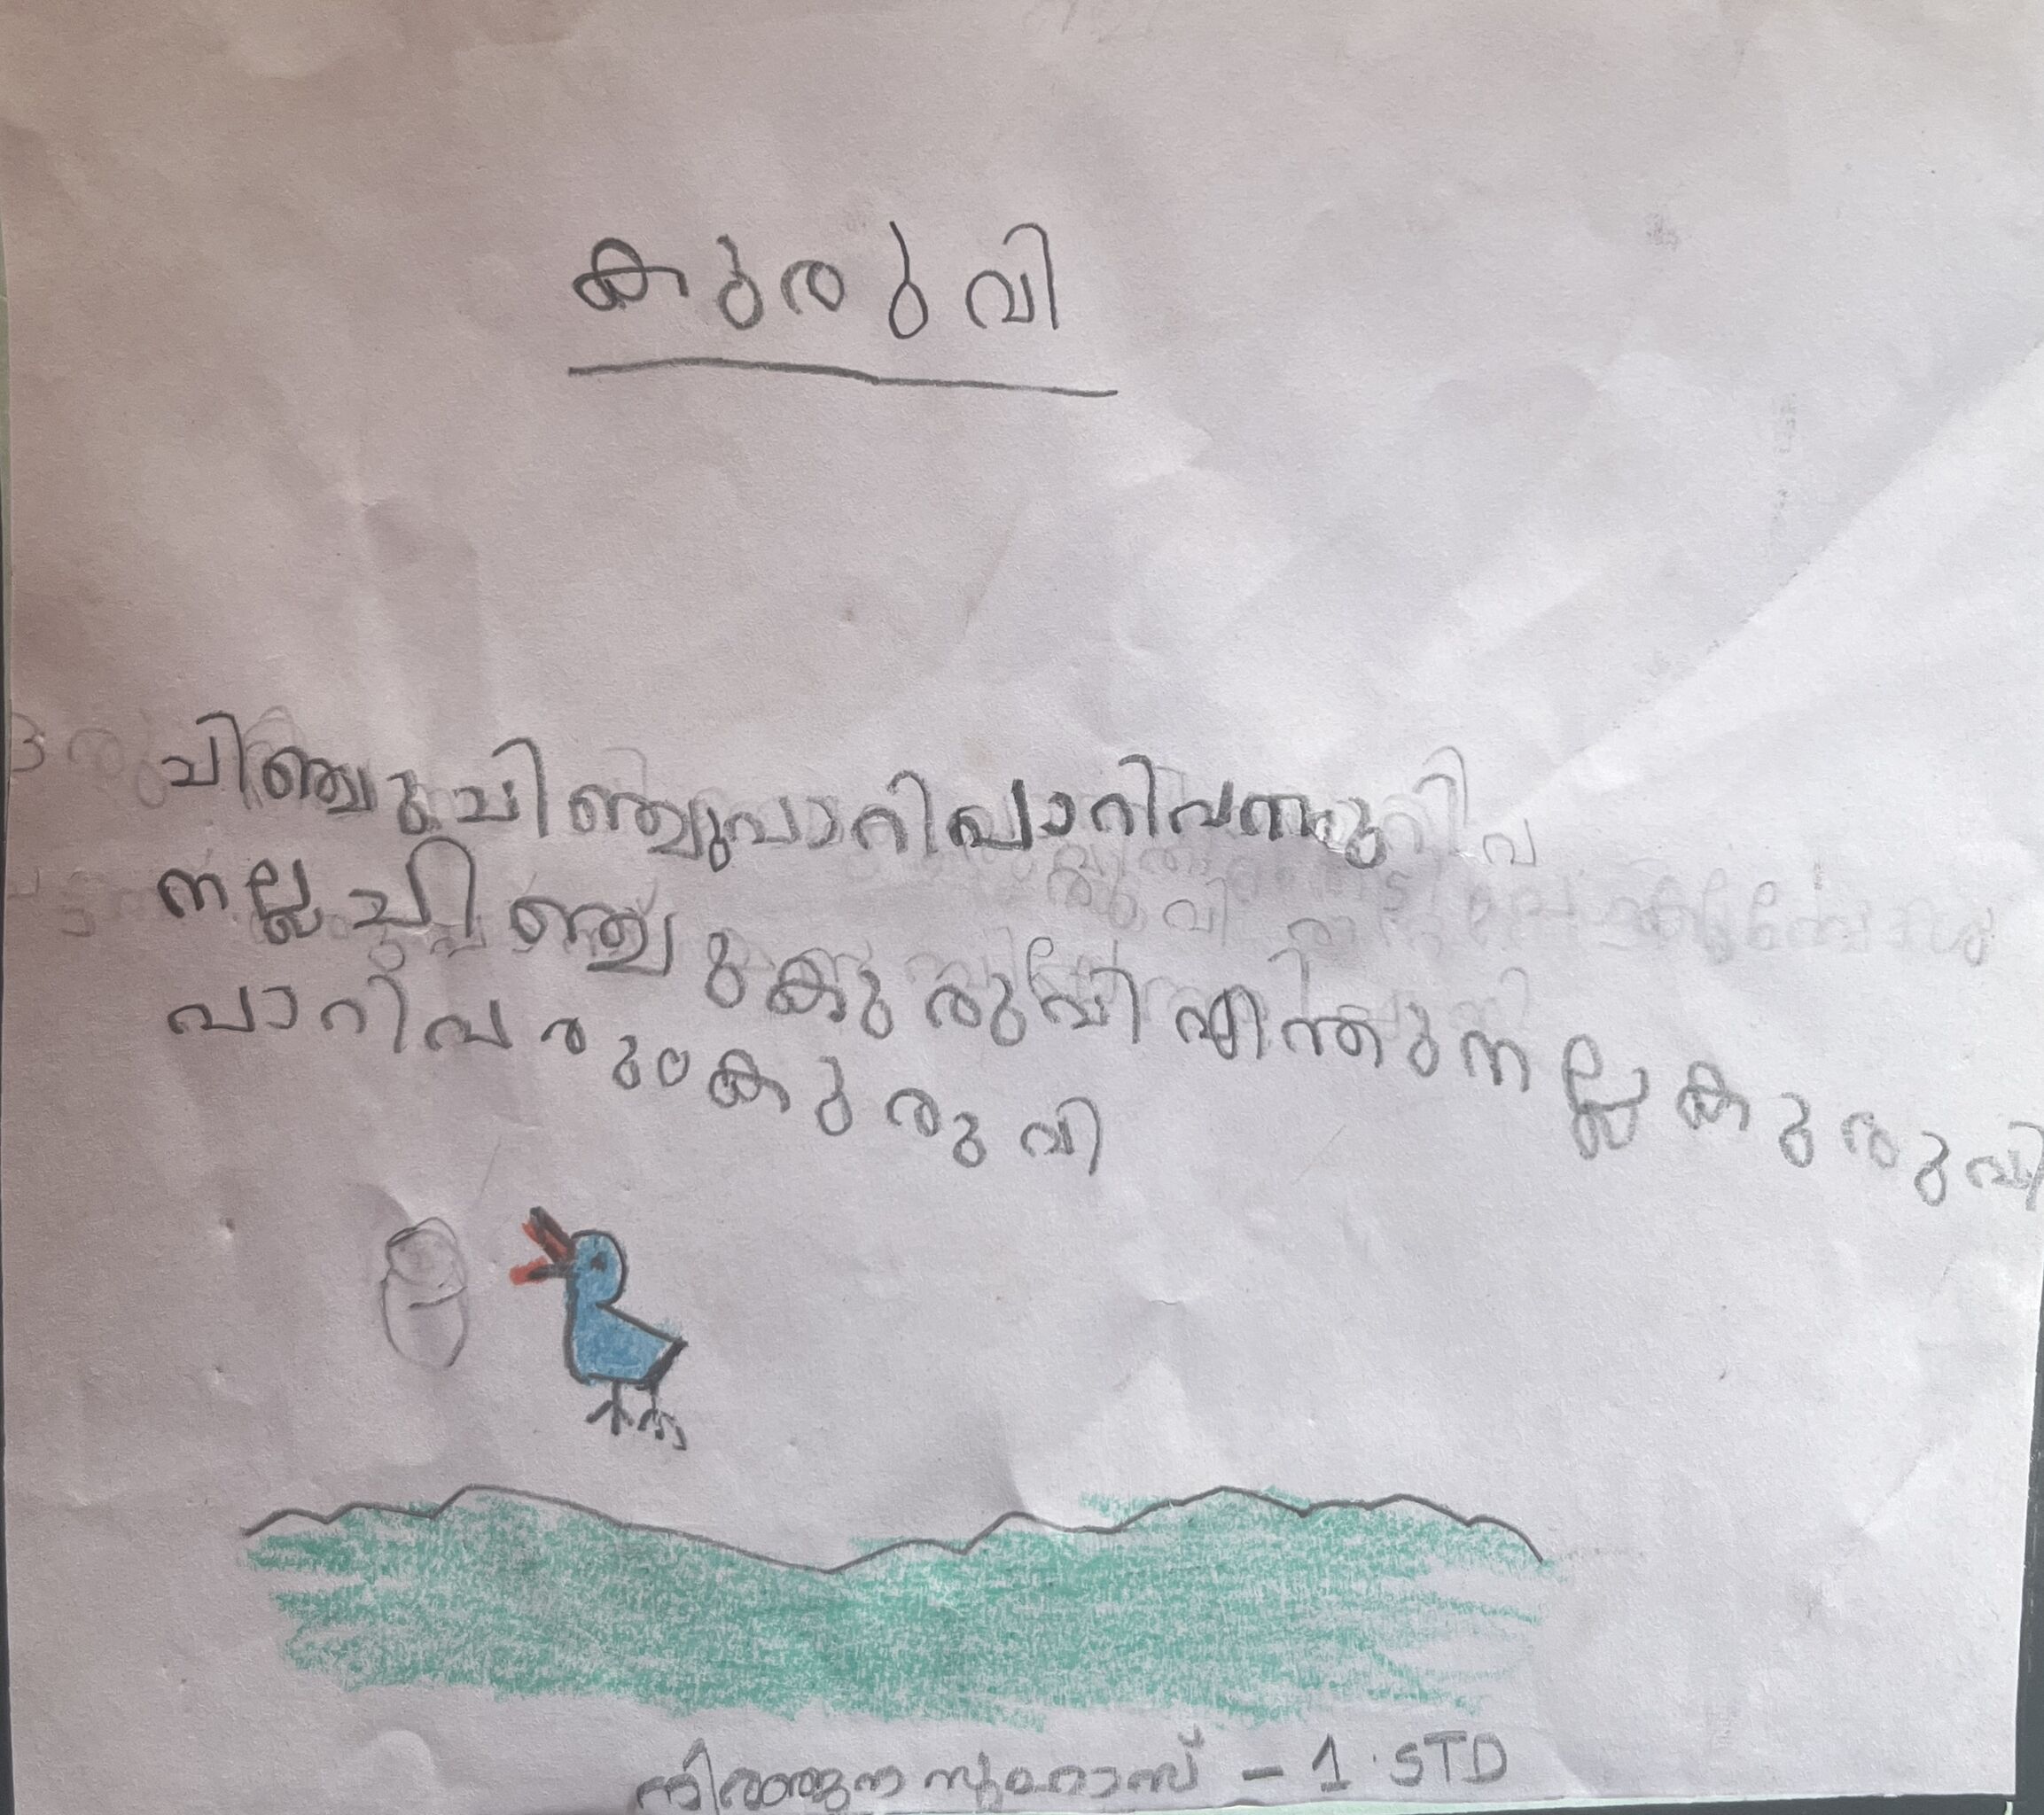 കുരുവി
ചിഞ്ചു ചിഞ്ചു പാറി പാറി വന്നു
നല്ല ചിഞ്ചു കുരുവി എന്തു നല്ല കുരുവി
പാറി വരും കുരുവി
- 1 · STD